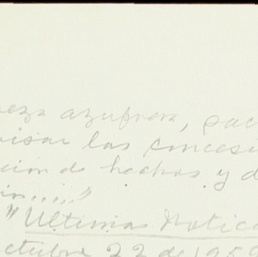 eza azufrera, pac
isar las concesi
ión de hechos y d
in....."
"Ultimas Notic
ctubre 22 de 1959